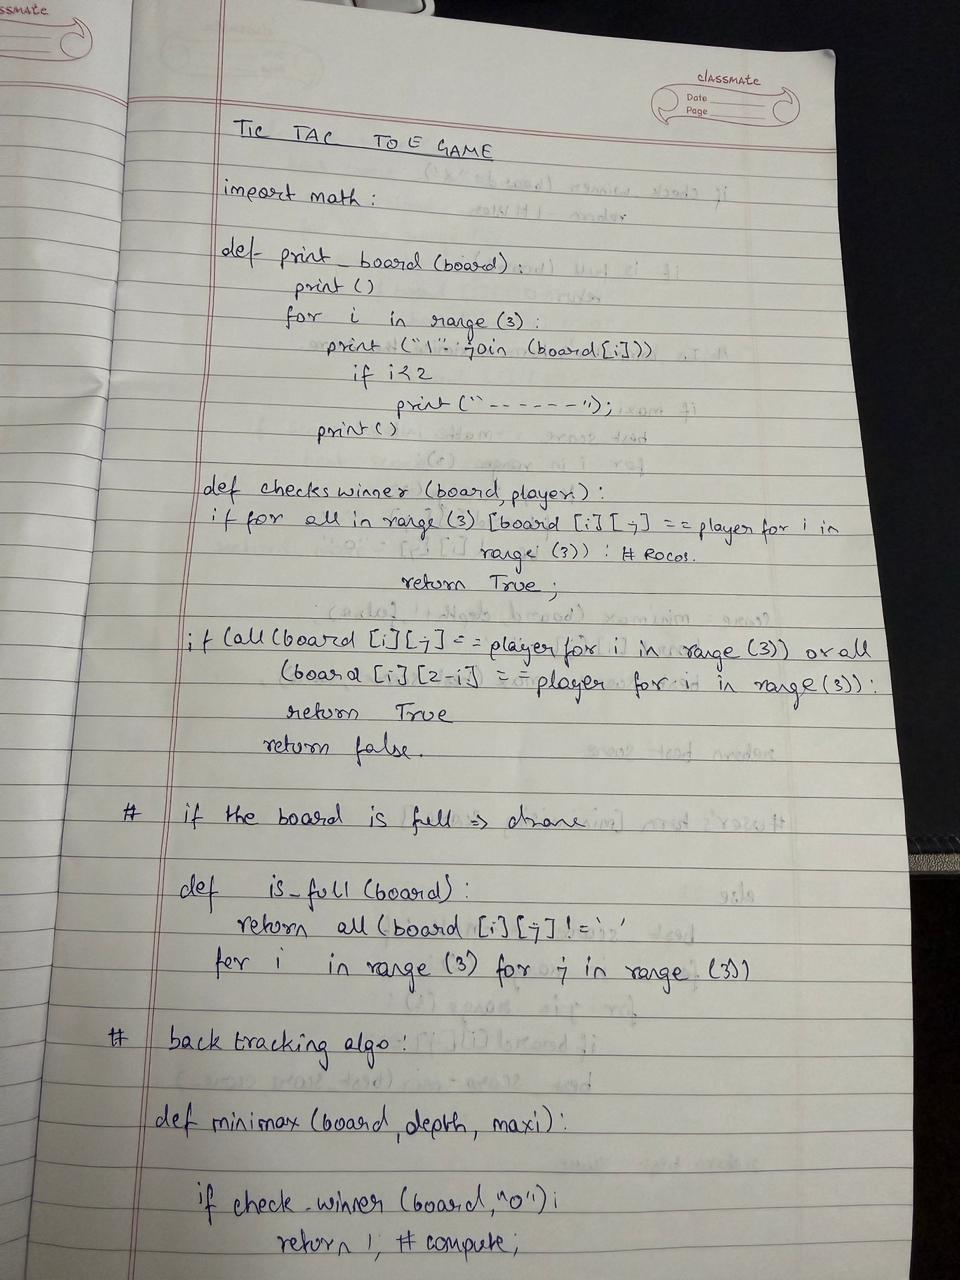 ssmate
classmate
Date
Page
TIC TAC TOE GAME
import math :
def print_board (board) :
print ()
for i in range (3) :
print ("|". join (board [i]))
if i<2
print ("------");
print ()
def checks winner (board, player) :
if for all in range (3) [board [i] [j] == player for i in
range (3)) : # Rocos.
return True ;
if (all (board [i] [j] == player for i in range (3)) or all
(board [i] [2-i] == player for i in range (3)) :
return True
return false.
# if the board is full => draw
def is_full (board) :
return all (board [i] [j] != ' '
for i in range (3) for j in range (3))
# back tracking algo :
def minimax (board, depth, maxi) :
if check_winner (board, "O") :
return 1; # compute;